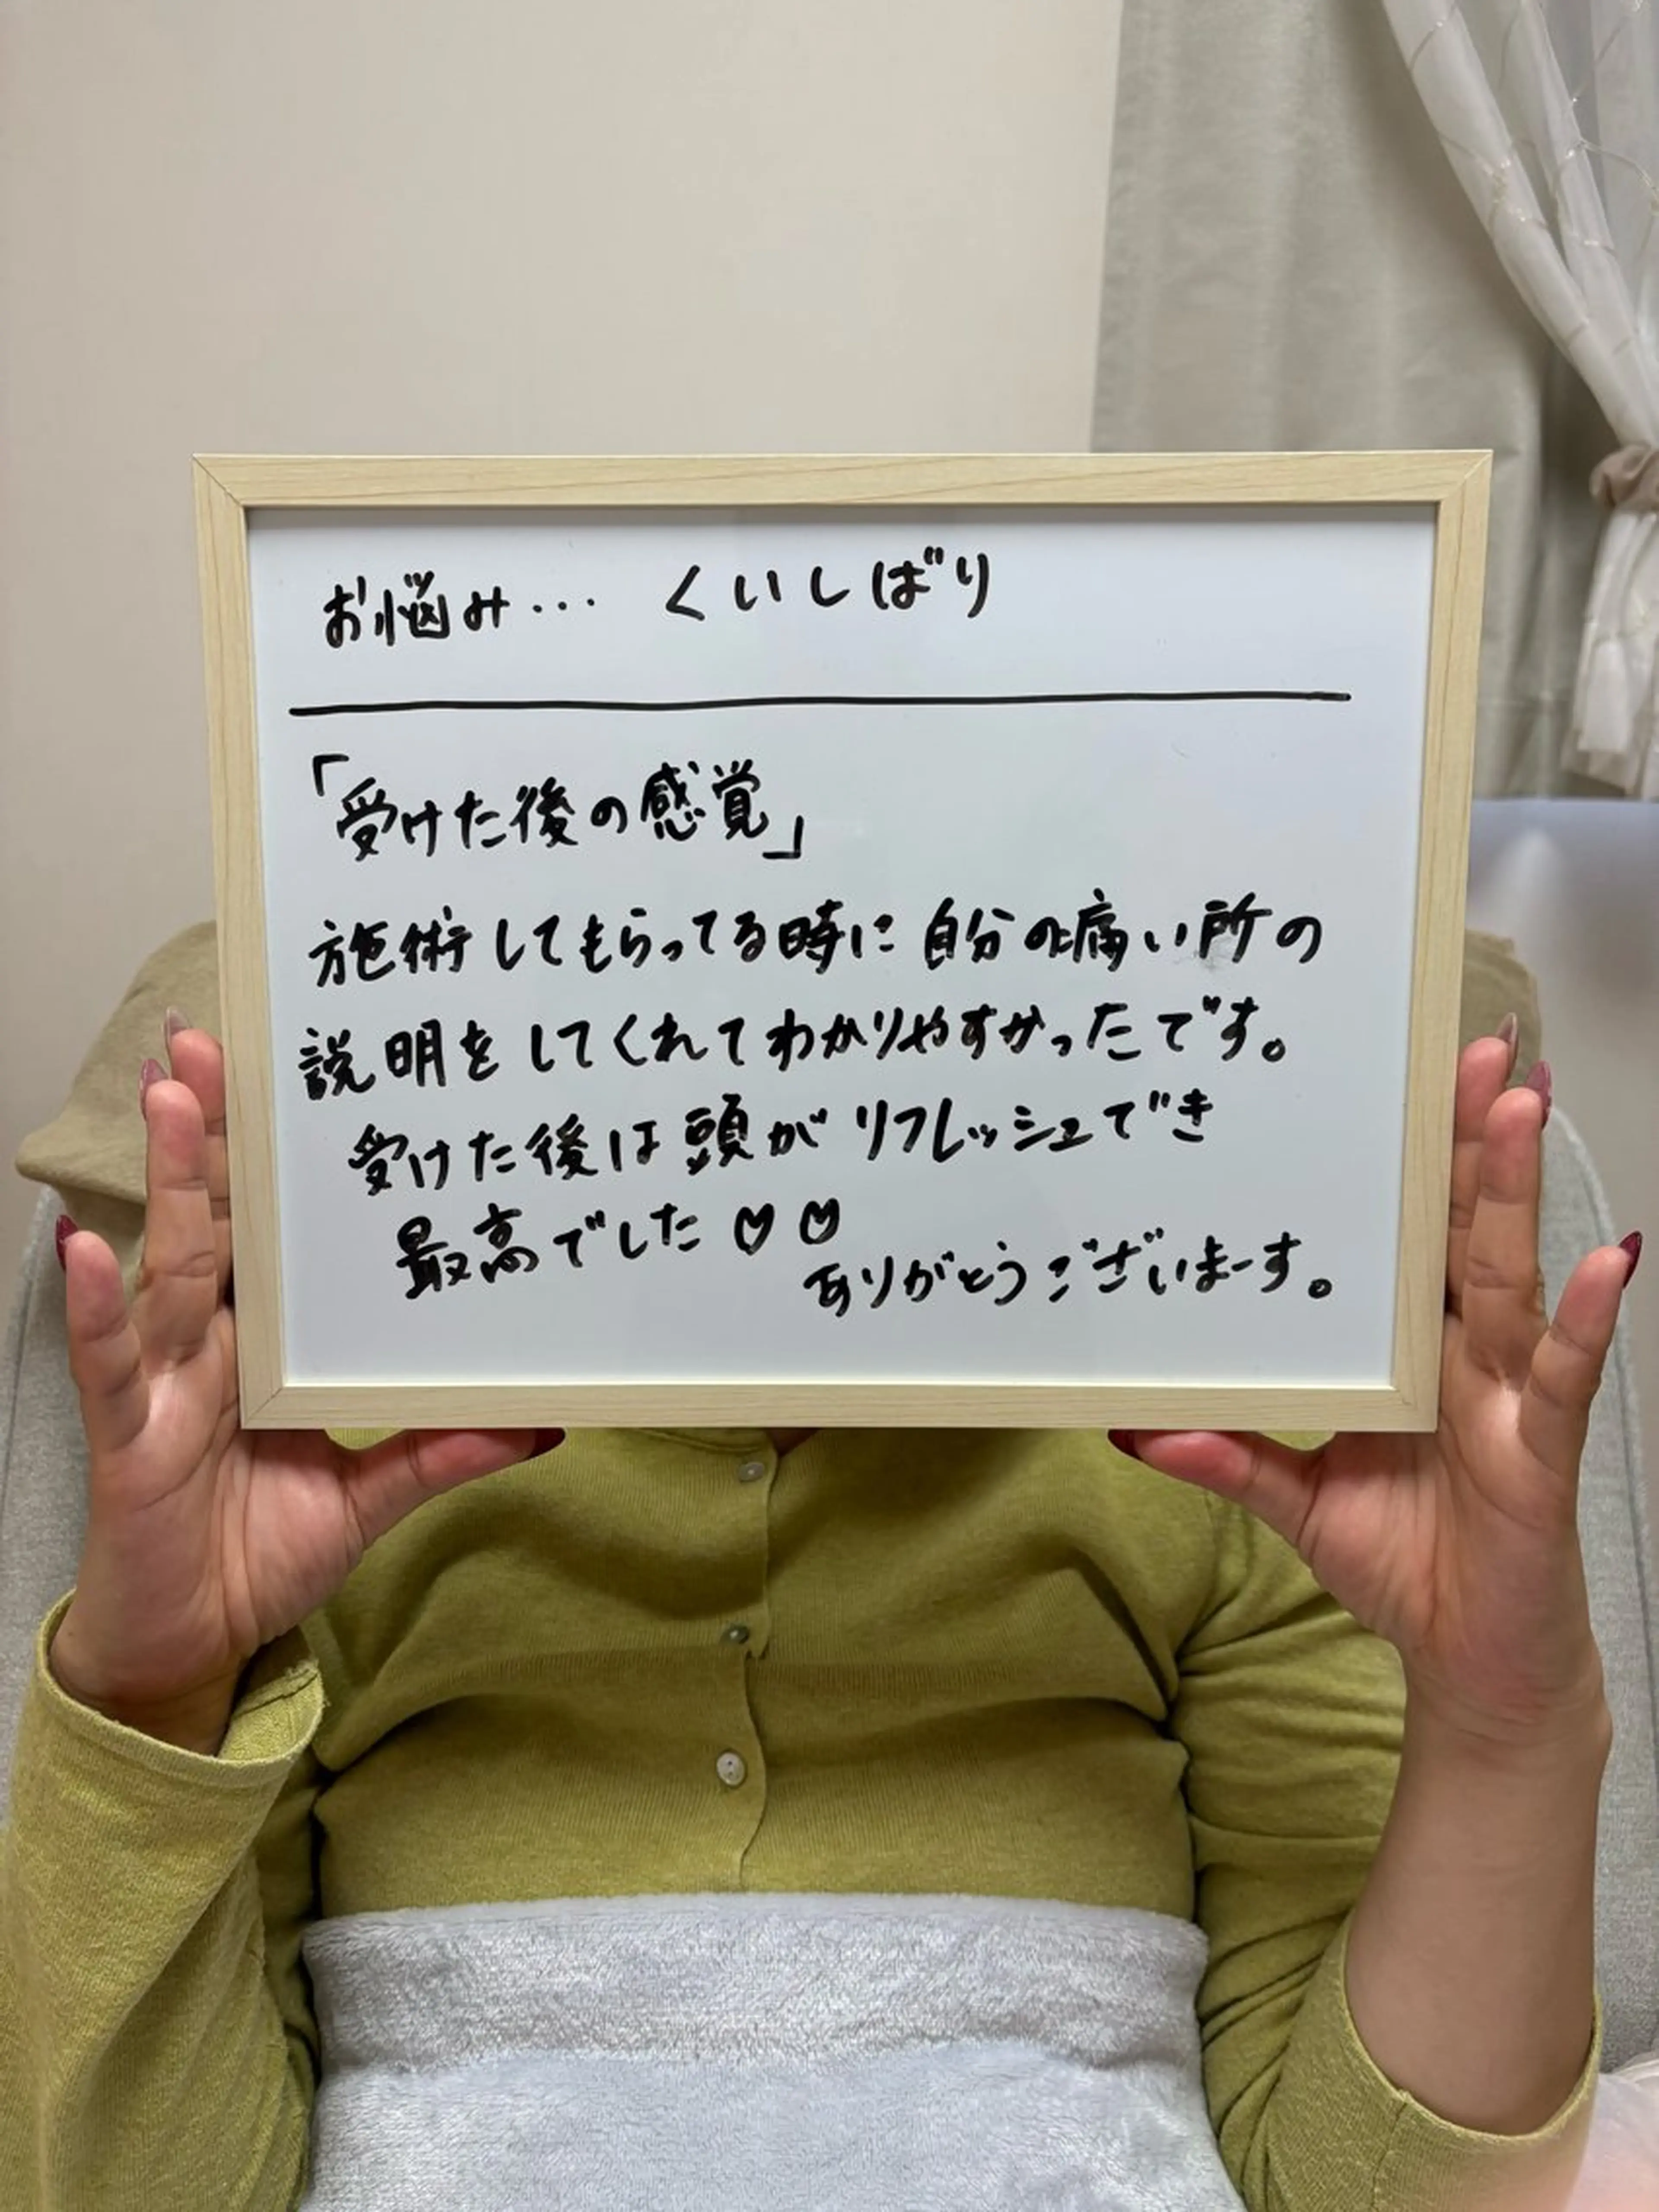 お悩み… くいしばり
「受けた後の感覚」
施術してもらってる時に自分の痛い所の
説明をしてくれてわかりやすかったです。
受けた後は頭がリフレッシュでき
最高でした♡♡
ありがとうございまーす。